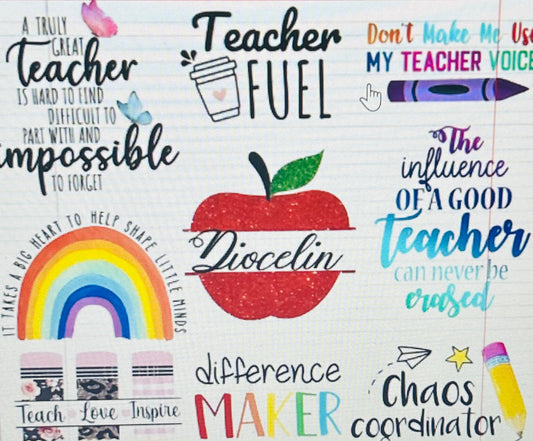 A TRULY
GREAT
Teacher
IS HARD TO FIND
DIFFICULT TO
PART WITH AND
impossible
TO FORGET
Teacher
FUEL
Don't Make Me Use
MY TEACHER VOICE
IT TAKES A BIG HEART TO HELP SHAPE LITTLE MINDS
Diocelin
The
influence
OF A GOOD
Teacher
can never be
erased
Teach Love Inspire
difference
MAKER
Chaos
coordinator